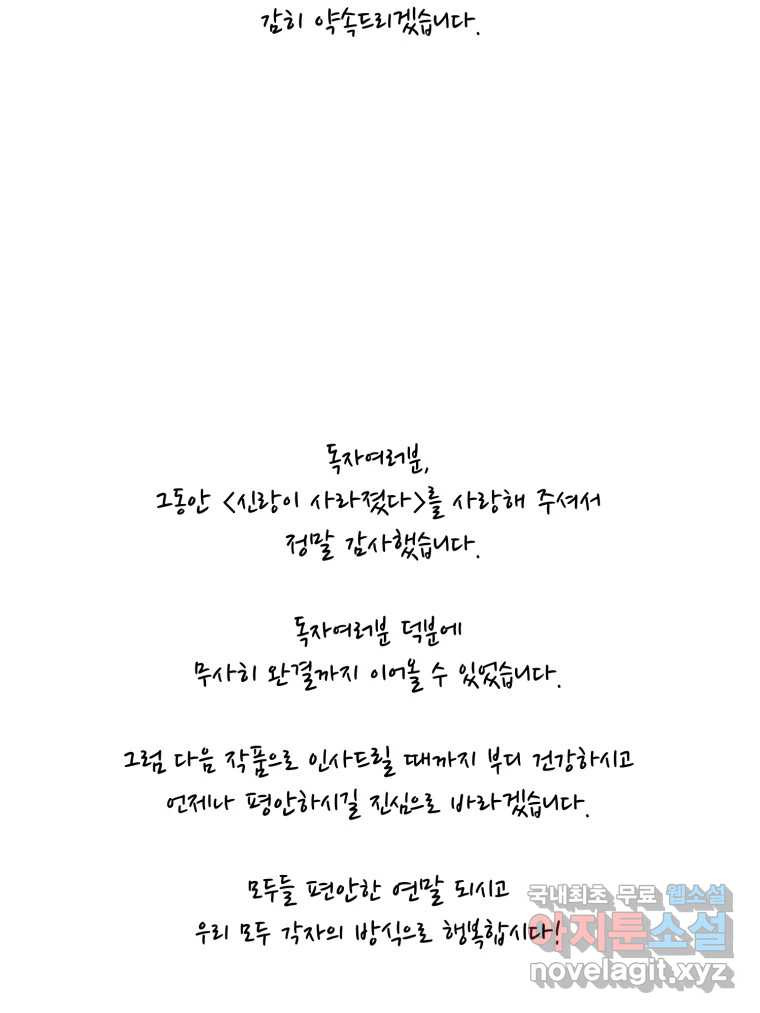 감히 약속드리겠습니다.
독자여러분,
그동안 <신랑이 사라졌다>를 사랑해 주셔서
정말 감사했습니다.
독자여러분 덕분에
무사히 완결까지 이어올 수 있었습니다.
그럼 다음 작품으로 인사드릴 때까지 부디 건강하시고
언제나 평안하시길 진심으로 바라겠습니다.
모두들 편안한 연말 되시고
우리 모두 각자의 방식으로 행복합시다!
국내최초 무료 웹소설
아지툰소설
novelagit.xyz